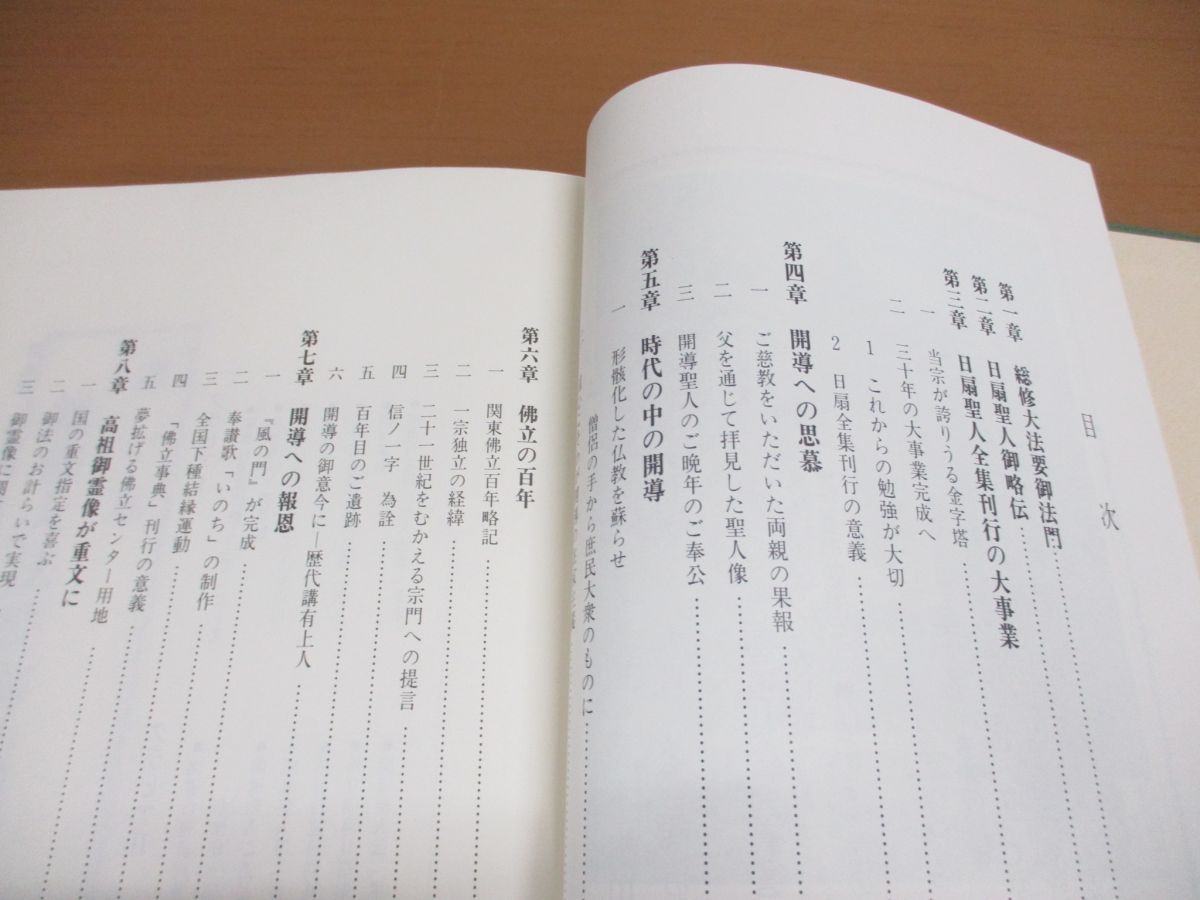 目次
第一章 総修大法要御法門
第二章 日扇聖人御略伝
第三章 日扇聖人全集刊行の大事業
一 当宗が誇りうる金字塔
二 三十年の大事業完成へ
1 これからの勉強が大切
2 日扇全集刊行の意義
第四章 開導への思慕
一 ご慈教をいただいた両親の果報
二 父を通じて拝見した聖人像
三 開導聖人のご晩年のご奉公
第五章 時代の中の開導
一 形骸化した仏教を蘇らせ
僧侶の手から庶民大衆のものに
第六章 佛立の百年
一 関東佛立百年略記
二 一宗独立の経緯
三 二十一世紀をむかえる宗門への提言
四 信ノ一字 為詮
五 百年目のご遺跡
六 開導の御意今に―歴代講有上人
第七章 開導への報恩
一 『風の門』が完成
二 奉讃歌「いのち」の制作
三 全国下種結縁運動
四 「佛立事典」刊行の意義
五 夢拡げる佛立センター用地
第八章 高祖御霊像が重文に
一 国の重文指定を喜ぶ
二 御法のお計らいで実現
三 御霊像に関